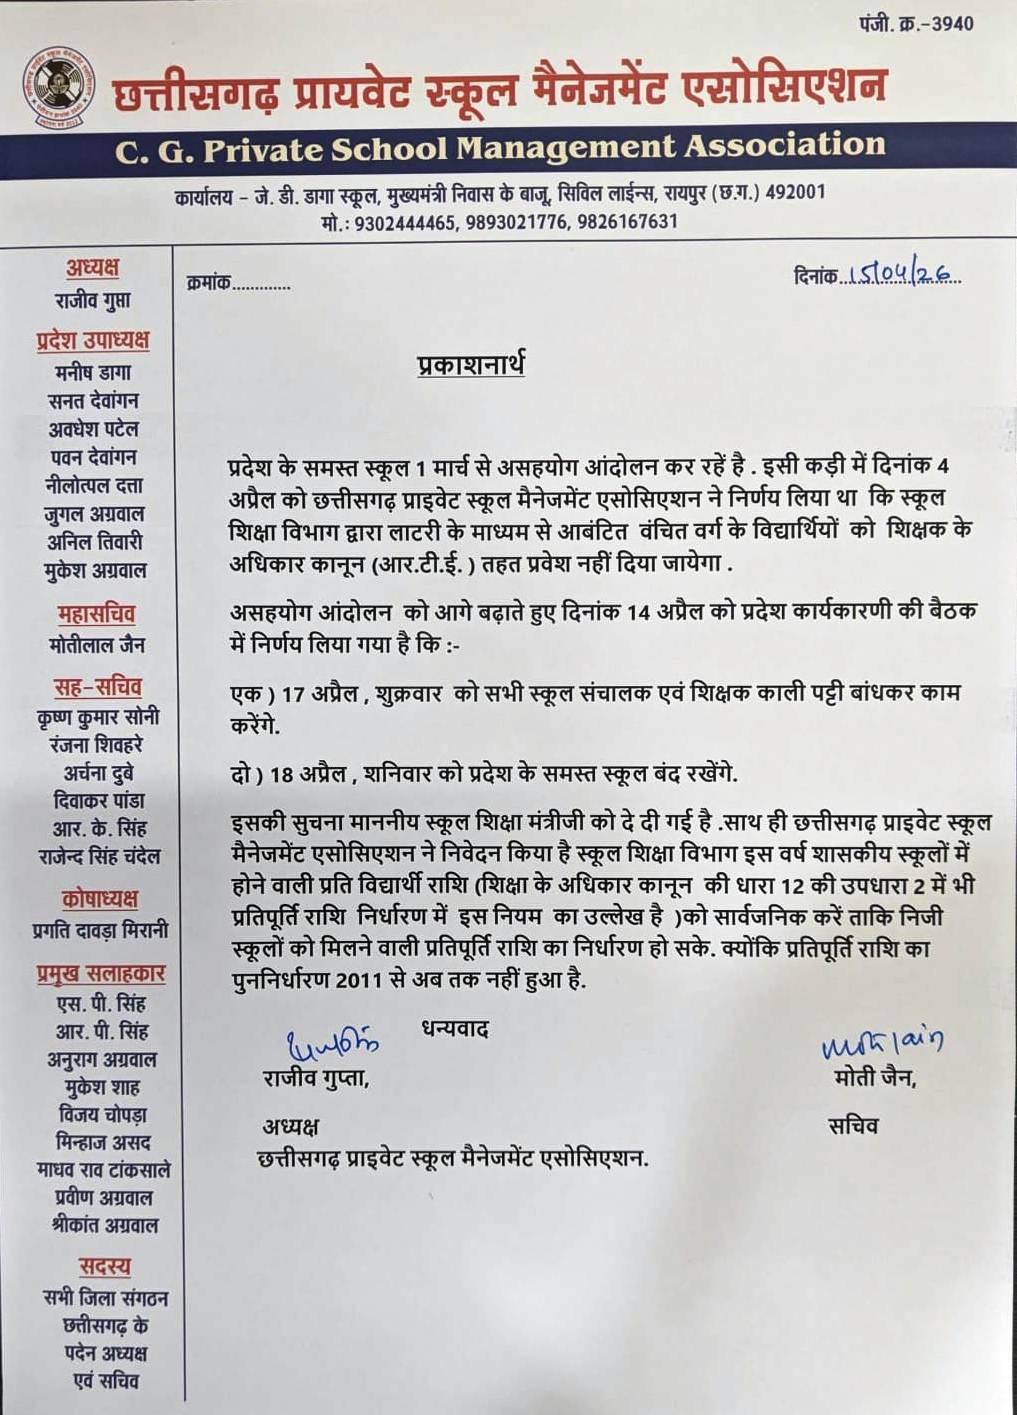 पंजी. क्र.-3940
छत्तीसगढ़ प्रायवेट स्कूल मैनेजमेंट एसोसिएशन
C. G. Private School Management Association
कार्यालय - जे. डी. डागा स्कूल, मुख्यमंत्री निवास के बाजू, सिविल लाईन्स, रायपुर (छ.ग.) 492001
मो.: 9302444465, 9893021776, 9826167631
अध्यक्ष
राजीव गुप्ता
प्रदेश उपाध्यक्ष
मनीष डागा
सनत देवांगन
अवधेश पटेल
पवन देवांगन
नीलोत्पल दत्ता
जुगल अग्रवाल
अनिल तिवारी
मुकेश अग्रवाल
महासचिव
मोतीलाल जैन
सह-सचिव
कृष्ण कुमार सोनी
रंजना शिवहरे
अर्चना दुबे
दिवाकर पांडा
आर. के. सिंह
राजेन्द सिंह चंदेल
कोषाध्यक्ष
प्रगति दावड़ा मिरानी
प्रमुख सलाहकार
एस. पी. सिंह
आर. पी. सिंह
अनुराग अग्रवाल
मुकेश शाह
विजय चोपड़ा
मिन्हाज असद
माधव राव टांकसाले
प्रवीण अग्रवाल
श्रीकांत अग्रवाल
सदस्य
सभी जिला संगठन
छत्तीसगढ़ के
पदेन अध्यक्ष
एवं सचिव
क्रमांक.............
दिनांक...15/04/26...
प्रकाशनार्थ
प्रदेश के समस्त स्कूल 1 मार्च से असहयोग आंदोलन कर रहें है . इसी कड़ी में दिनांक 4
अप्रैल को छत्तीसगढ़ प्राइवेट स्कूल मैनेजमेंट एसोसिएशन ने निर्णय लिया था कि स्कूल
शिक्षा विभाग द्वारा लाटरी के माध्यम से आबंटित वंचित वर्ग के विद्यार्थियों को शिक्षक के
अधिकार कानून (आर.टी.ई. ) तहत प्रवेश नहीं दिया जायेगा .
असहयोग आंदोलन को आगे बढ़ाते हुए दिनांक 14 अप्रैल को प्रदेश कार्यकारणी की बैठक
में निर्णय लिया गया है कि :-
एक ) 17 अप्रैल , शुक्रवार को सभी स्कूल संचालक एवं शिक्षक काली पट्टी बांधकर काम
करेंगे.
दो ) 18 अप्रैल , शनिवार को प्रदेश के समस्त स्कूल बंद रखेंगे.
इसकी सुचना माननीय स्कूल शिक्षा मंत्रीजी को दे दी गई है .साथ ही छत्तीसगढ़ प्राइवेट स्कूल
मैनेजमेंट एसोसिएशन ने निवेदन किया है स्कूल शिक्षा विभाग इस वर्ष शासकीय स्कूलों में
होने वाली प्रति विद्यार्थी राशि (शिक्षा के अधिकार कानून की धारा 12 की उपधारा 2 में भी
प्रतिपूर्ति राशि निर्धारण में इस नियम का उल्लेख है )को सार्वजनिक करें ताकि निजी
स्कूलों को मिलने वाली प्रतिपूर्ति राशि का निर्धारण हो सके. क्योंकि प्रतिपूर्ति राशि का
पुननिर्धारण 2011 से अब तक नहीं हुआ है.
धन्यवाद
राजीव गुप्ता,
अध्यक्ष
छत्तीसगढ़ प्राइवेट स्कूल मैनेजमेंट एसोसिएशन.
मोती जैन,
सचिव